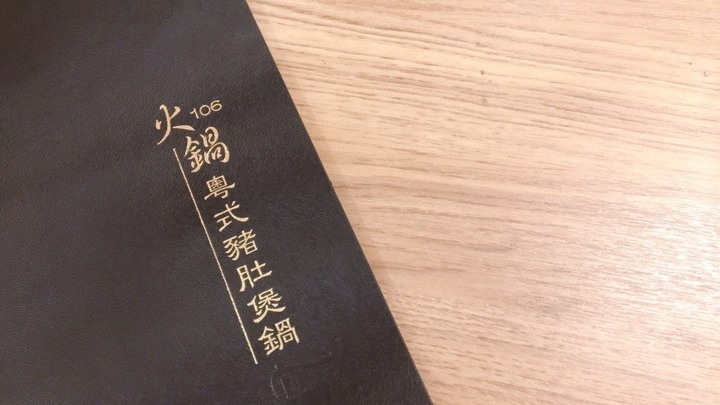 106
火鍋
粵式豬肚煲鍋